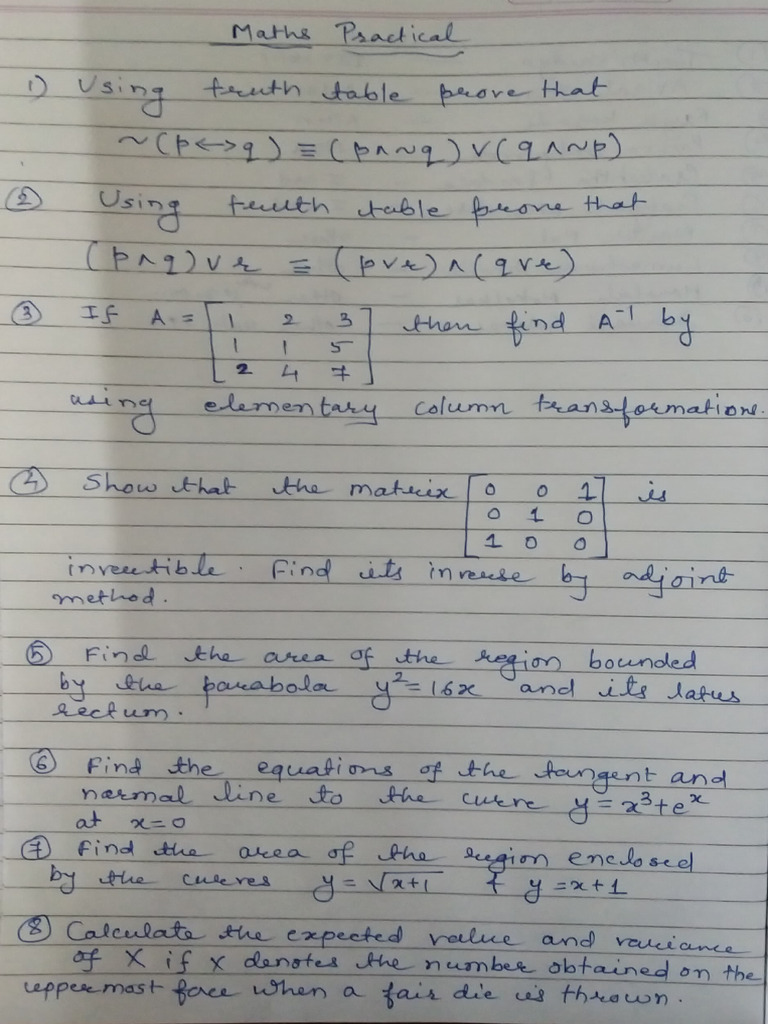 Maths Practical
1) Using truth table prove that
~(p↔q) ≡ (p∧~q) ∨ (q∧~p)
② Using truth table prove that
(p∧q)∨r ≡ (p∨r)∧(q∨r)
③ If A = [1 2 3] then find A⁻¹ by
1 1 5
2 4 7
using elementary column transformations.
④ Show that the matrix [0 0 1] is
0 1 0
1 0 0
invertible. Find its inverse by adjoint
method.
⑤ Find the area of the region bounded
by the parabola y²=16x and its latus
rectum.
⑥ Find the equations of the tangent and
normal line to the curve y = x³+eˣ
at x=0
⑦ Find the area of the region enclosed
by the curves y = √x+1 & y = x+1
⑧ Calculate the expected value and variance
of X if X denotes the number obtained on the
uppermost face when a fair die is thrown.